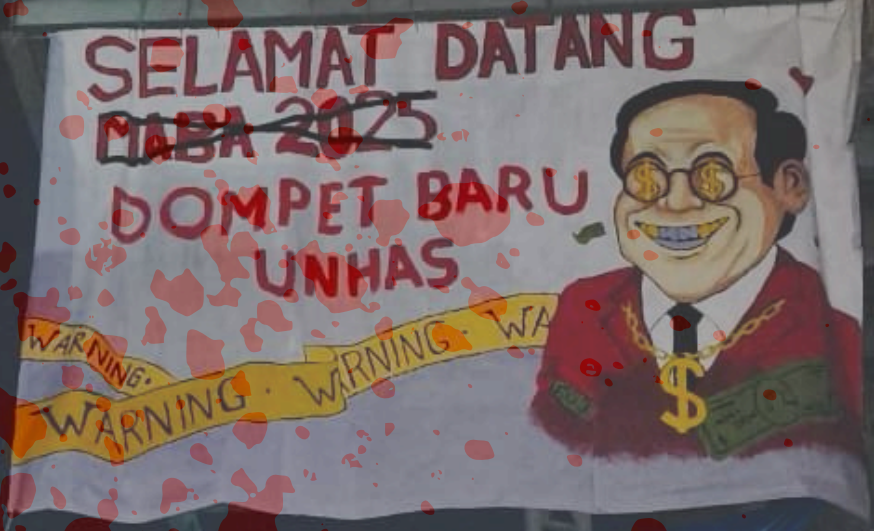 SELAMAT DATANG
MABA 2025
DOMPET BARU
UNHAS
WARNING.
WARNING · WARNING · WA
$ $
$